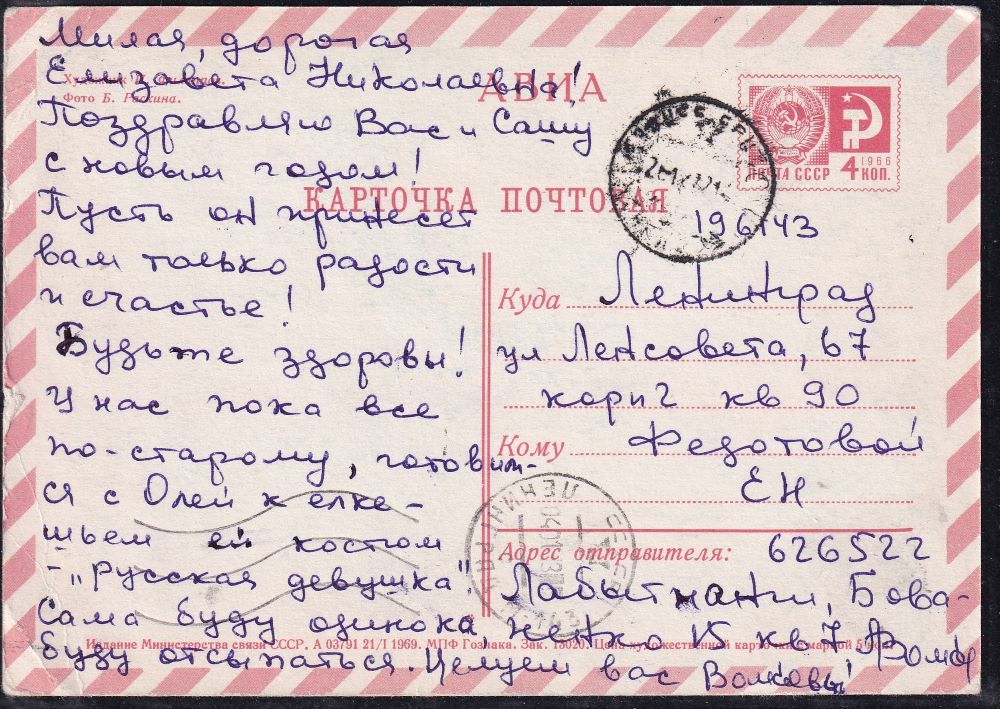 Милая, дорогая
Елизавета Николаевна!
Фото Б. Раскина.
Поздравляю Вас и Сашу
с новым годом!
Пусть он принесет
вам только радости
и счастье!
Будьте здоровы!
У нас пока все
по-старому, готовим-
ся с Олей к елке-
шьем ей костюм
-"Русская девушка".
Сама буду одинока,
буду отсыпаться. Целуем вас Волковы!
АВИА
КАРТОЧКА ПОЧТОВАЯ
ПОЧТА СССР
1966
4 КОП.
196143
Куда Ленинград
ул Ленсовета, 67
кор 2 кв 90
Кому Федотовой
ЕН
Адрес отправителя: 626522
Лабытнанги, Бова-
ненко 15 кв 7
Издание Министерства связи СССР. А 03791 21/I 1969. МПФ Гознака. Зак. 15020. Цена художественной карточки с маркой 5 коп.